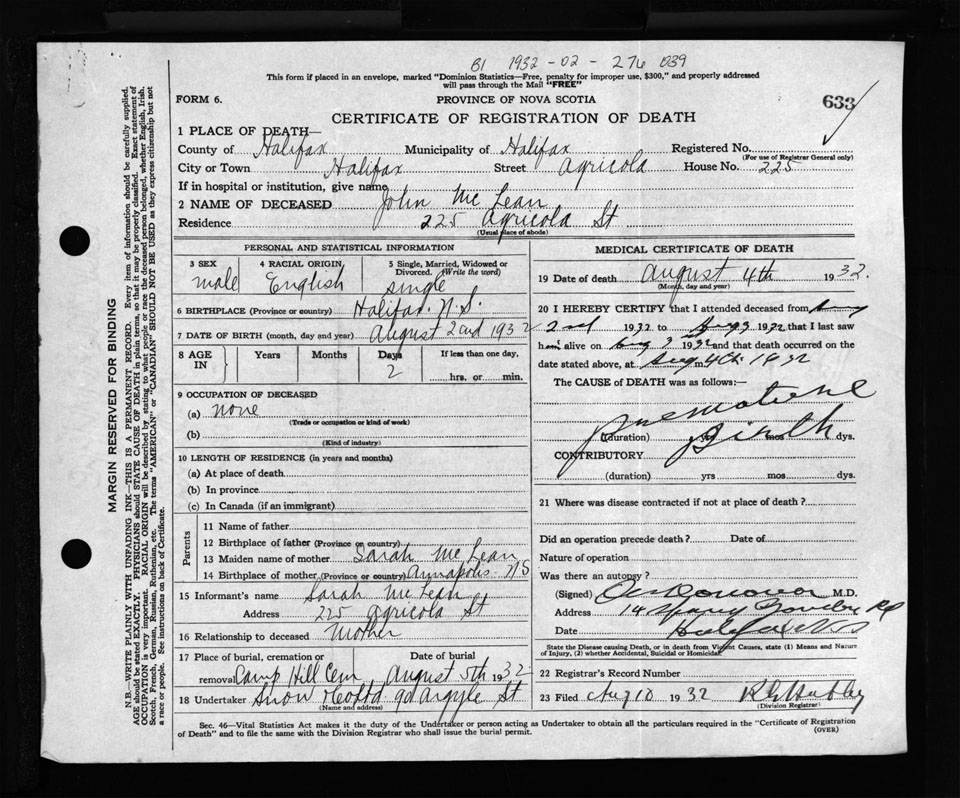 B1 1932 - 02 - 276 039
This form if placed in an envelope, marked "Dominion Statistics—Free, penalty for improper use, $300," and properly addressed
will pass through the Mail "FREE"
FORM 6.
PROVINCE OF NOVA SCOTIA
633
CERTIFICATE OF REGISTRATION OF DEATH
1 PLACE OF DEATH—
County of Halifax Municipality of Halifax Registered No.
(For use of Registrar General only)
City or Town Halifax Street Agricola House No. 225
If in hospital or institution, give name
2 NAME OF DECEASED John McLean
Residence 225 Agricola St
(Usual place of abode)
PERSONAL AND STATISTICAL INFORMATION
3 SEX male
4 RACIAL ORIGIN English
5 Single, Married, Widowed or
Divorced. (Write the word)
single
6 BIRTHPLACE (Province or country) Halifax. N.S.
7 DATE OF BIRTH (month, day and year) August 2nd 1932
8 AGE IN
Years Months Days If less than one day,
2 hrs. or min.
9 OCCUPATION OF DECEASED
(a) none
(Trade or occupation or kind of work)
(b)
(Kind of industry)
10 LENGTH OF RESIDENCE (in years and months)
(a) At place of death
(b) In province
(c) In Canada (if an immigrant)
Parents
11 Name of father
12 Birthplace of father (Province or country)
13 Maiden name of mother Sarah McLean
14 Birthplace of mother (Province or country) Annapolis. N S
15 Informant's name Sarah McLean
Address 225 Agricola St
16 Relationship to deceased Mother
17 Place of burial, cremation or Date of burial
removal Camp Hill Cem August 5th 1932
18 Undertaker Snow & Co Ltd 90 Argyle St
(Name and address)
MEDICAL CERTIFICATE OF DEATH
19 Date of death August 4th 1932.
(Month, day and year)
20 I HEREBY CERTIFY that I attended deceased from Aug
2nd 1932 to Aug 3 1932 that I last saw
him alive on Aug 3 1932 and that death occurred on
date stated above, at Aug 4th 1932 m.
The CAUSE of DEATH was as follows:—
Premature
Birth
(duration) yrs mos dys.
CONTRIBUTORY
(duration) yrs mos dys.
21 Where was disease contracted if not at place of death?
Did an operation precede death? Date of
Nature of operation
Was there an autopsy?
(Signed) Donovan M.D.
Address 14
Date Halifax N S
State the Disease causing Death, or in death from Violent Causes, state (1) Means and Nature
of Injury, (2) whether Accidental, Suicidal or Homicidal.
22 Registrar's Record Number
23 Filed Aug 10 1932
(Division Registrar)
Sec. 46—Vital Statistics Act makes it the duty of the Undertaker or person acting as Undertaker to obtain all the particulars required in the "Certificate of Registration
of Death" and to file the same with the Division Registrar who shall issue the burial permit.
(OVER)
MARGIN RESERVED FOR BINDING
N.B.—WRITE PLAINLY WITH UNFADING INK—THIS IS A PERMANENT RECORD. Every item of information should be carefully supplied.
AGE should be stated EXACTLY. PHYSICIANS should STATE CAUSE OF DEATH in plain terms, so that it may be properly classified. Exact statement of
OCCUPATION is very important. RACIAL ORIGIN will be described by stating to what people or race the deceased person belonged, whether English, Irish,
Scotch, French, German, Russian, Ruthenian, etc. The terms "AMERICAN" or "CANADIAN" SHOULD NOT BE USED as they express citizenship but not
a race or people. See instructions on back of Certificate.